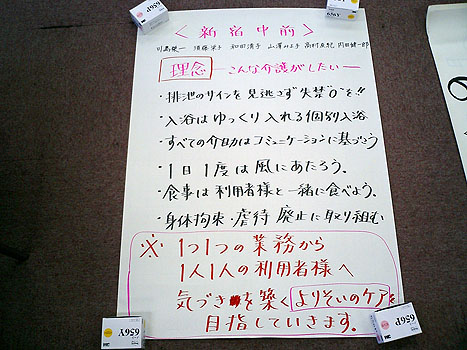 ＜新宿中前＞
川島榮一 須藤栄子 和田清子 山澤みよ子 高村友紀 岡田健一郎
理念 ―こんな介護がしたい―
・排泄のサインを見逃さず“失禁”0”を!!
・入浴はゆっくり入れる個別入浴
・すべての介助はコミュニケーションに基づこう
・1日1度は風にあたろう。
・食事は利用者様と一緒に食べよう。
・身体拘束・虐待廃止に取り組む
※ 1つ1つの業務から
1人1人の利用者様へ
気づきを築くよりそいのケアを
目指していきます。
656P
656Y
656P